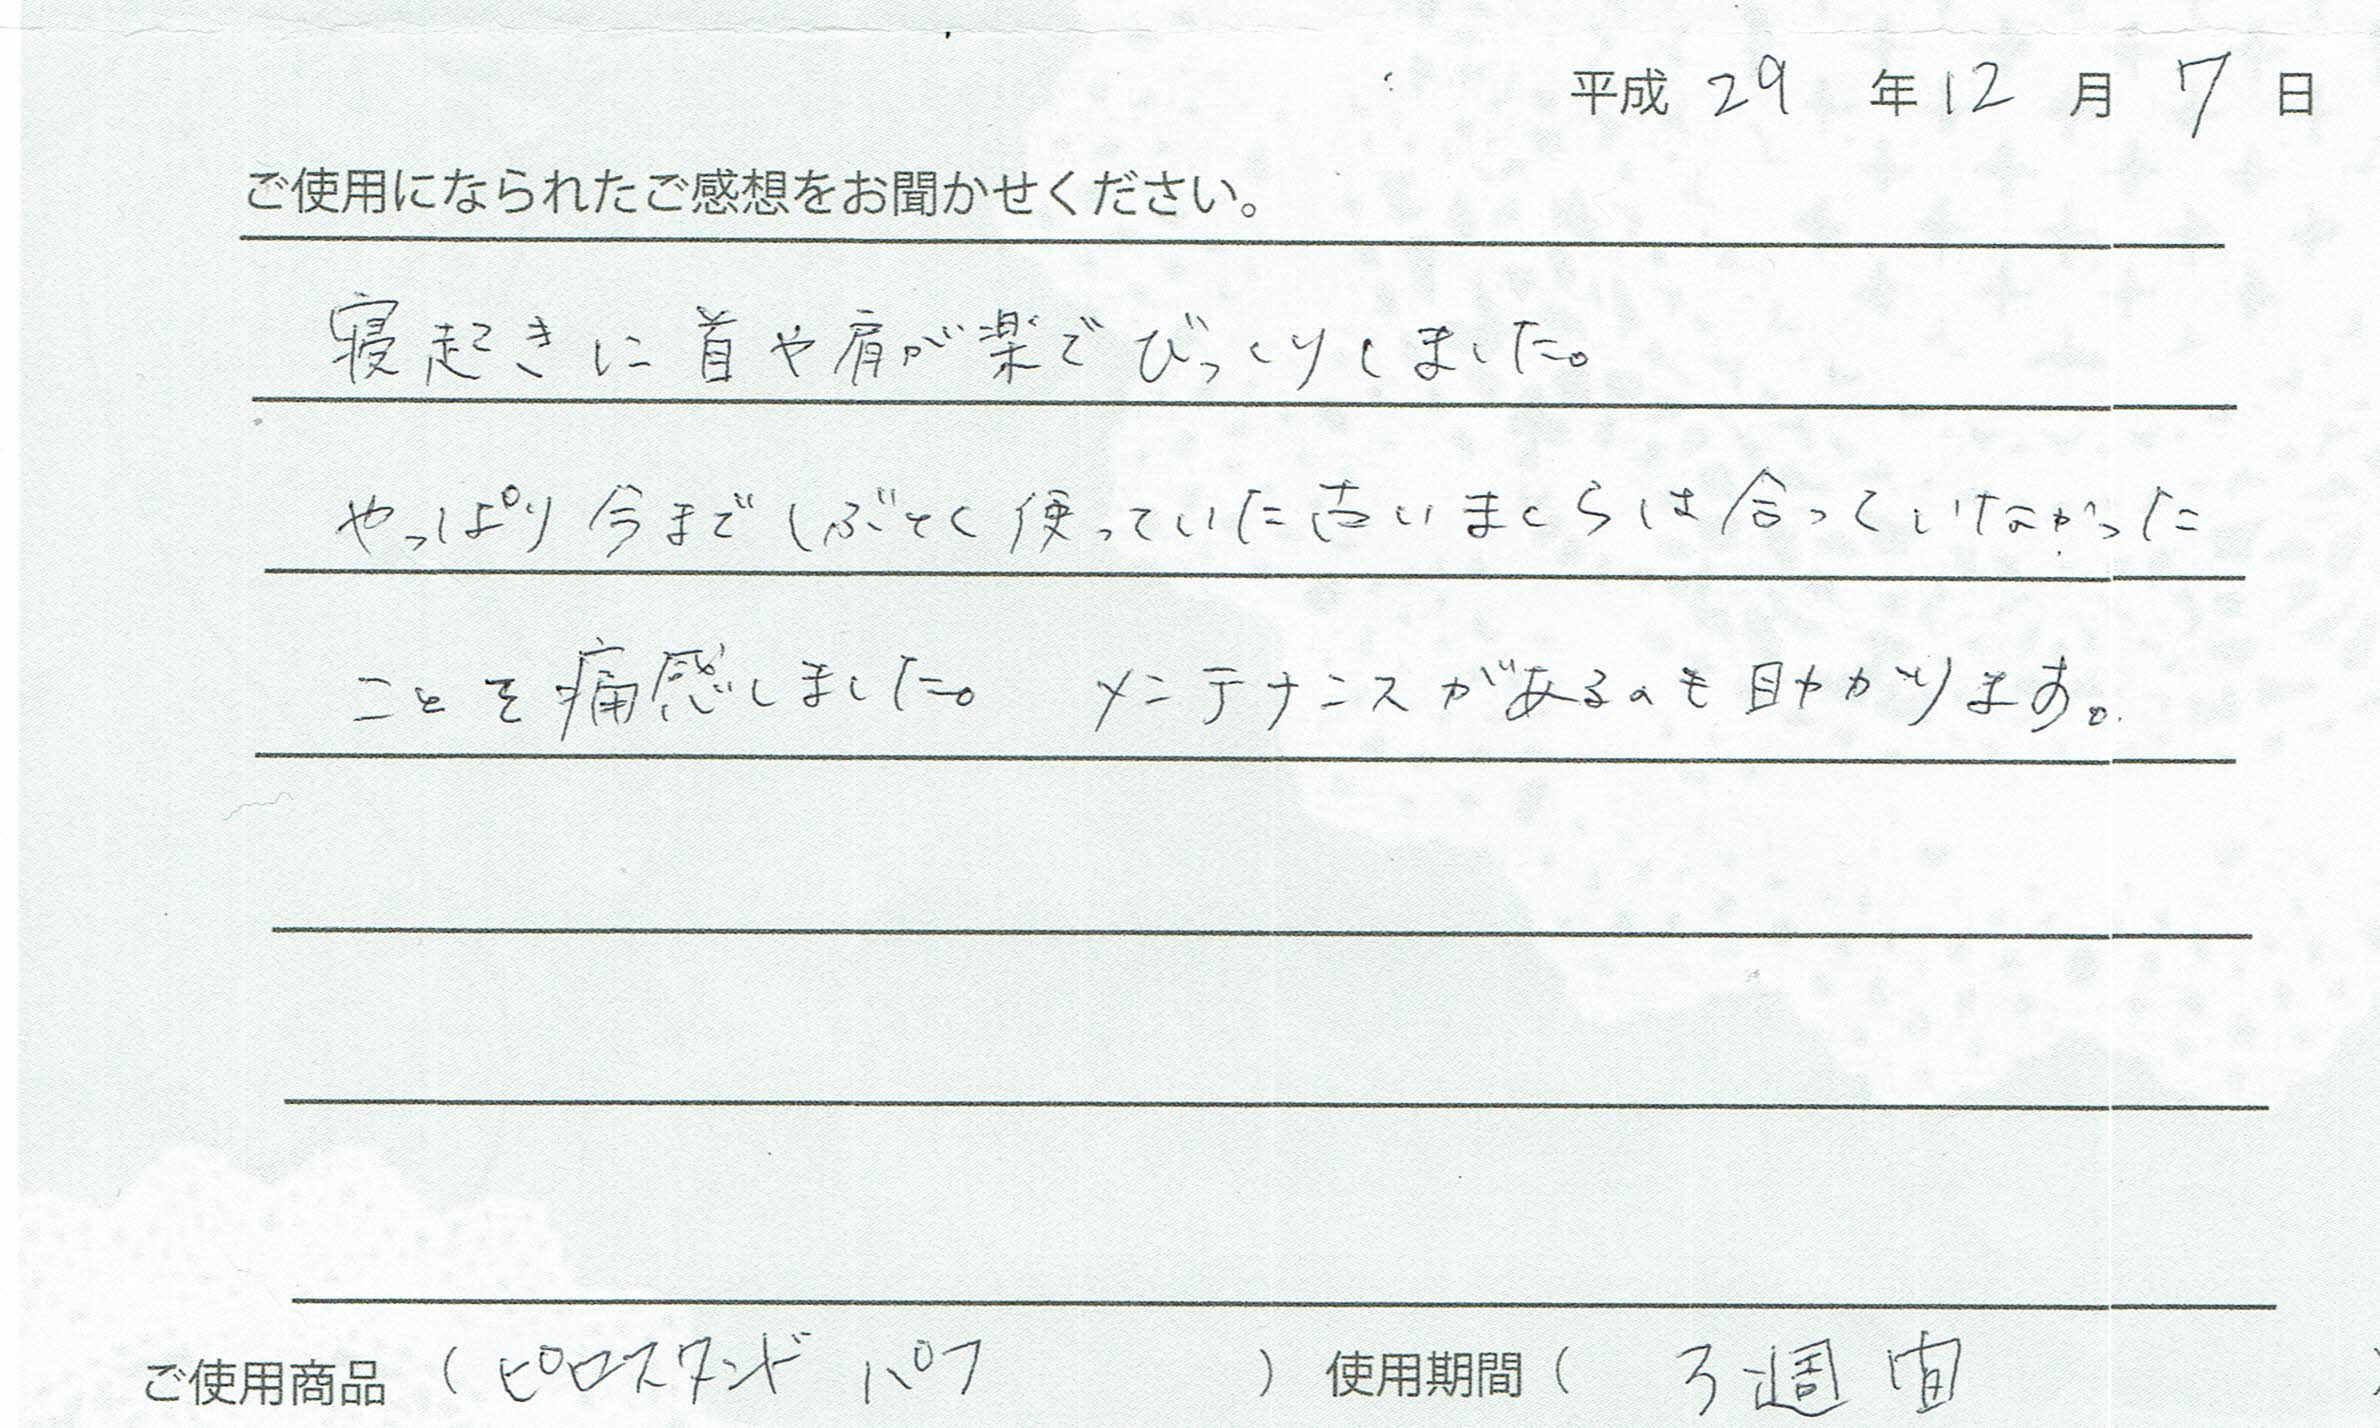 平成 29 年 12 月 7 日
ご使用になられたご感想をお聞かせください。
寝起きに首や肩が楽でびっくりしました。
やっぱり今までしぶとく使っていた古いまくらは合っていなかった
ことを痛感しました。 メンテナンスがあるのも助かります。
ご使用商品 ( ピロースタンド パフ ) 使用期間 ( 3週間 )